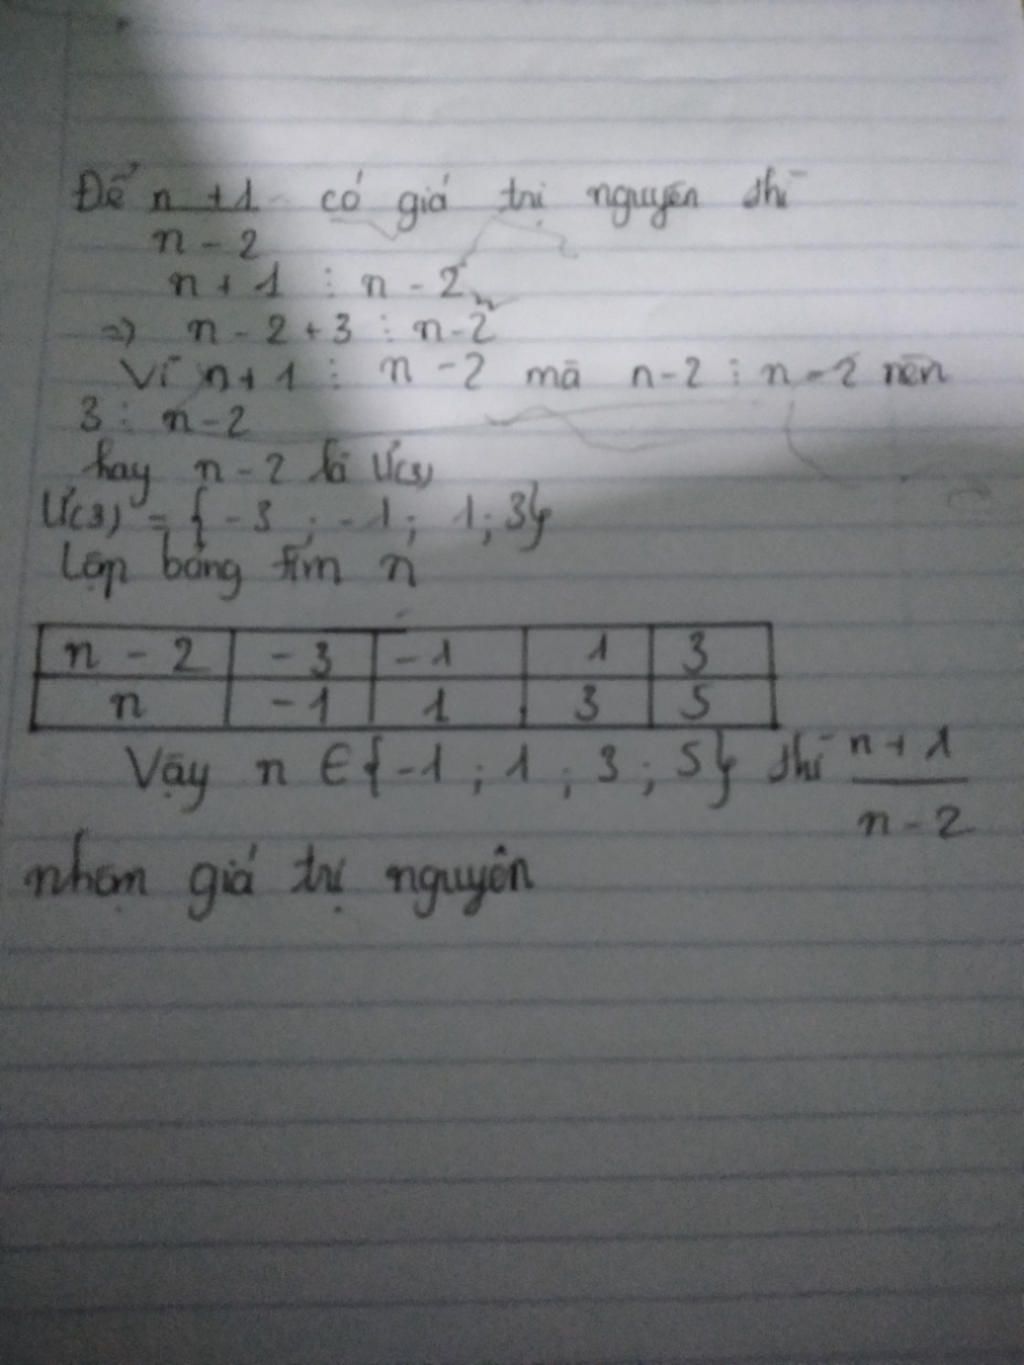 Để n + 1 có giá trị nguyên thì
n - 2
n + 1 ⋮ n - 2
=> n - 2 + 3 ⋮ n - 2
Vì n + 1 ⋮ n - 2 mà n - 2 ⋮ n - 2 nên
3 ⋮ n - 2
hay n - 2 là Ư(3)
Ư(3) = { - 3 ; - 1 ; 1 ; 3}
Lập bảng tìm n
n - 2 - 3 - 1 1 3
n - 1 1 3 5
Vậy n ∈ { - 1 ; 1 ; 3 ; 5} thì n + 1
n - 2
nhận giá trị nguyên